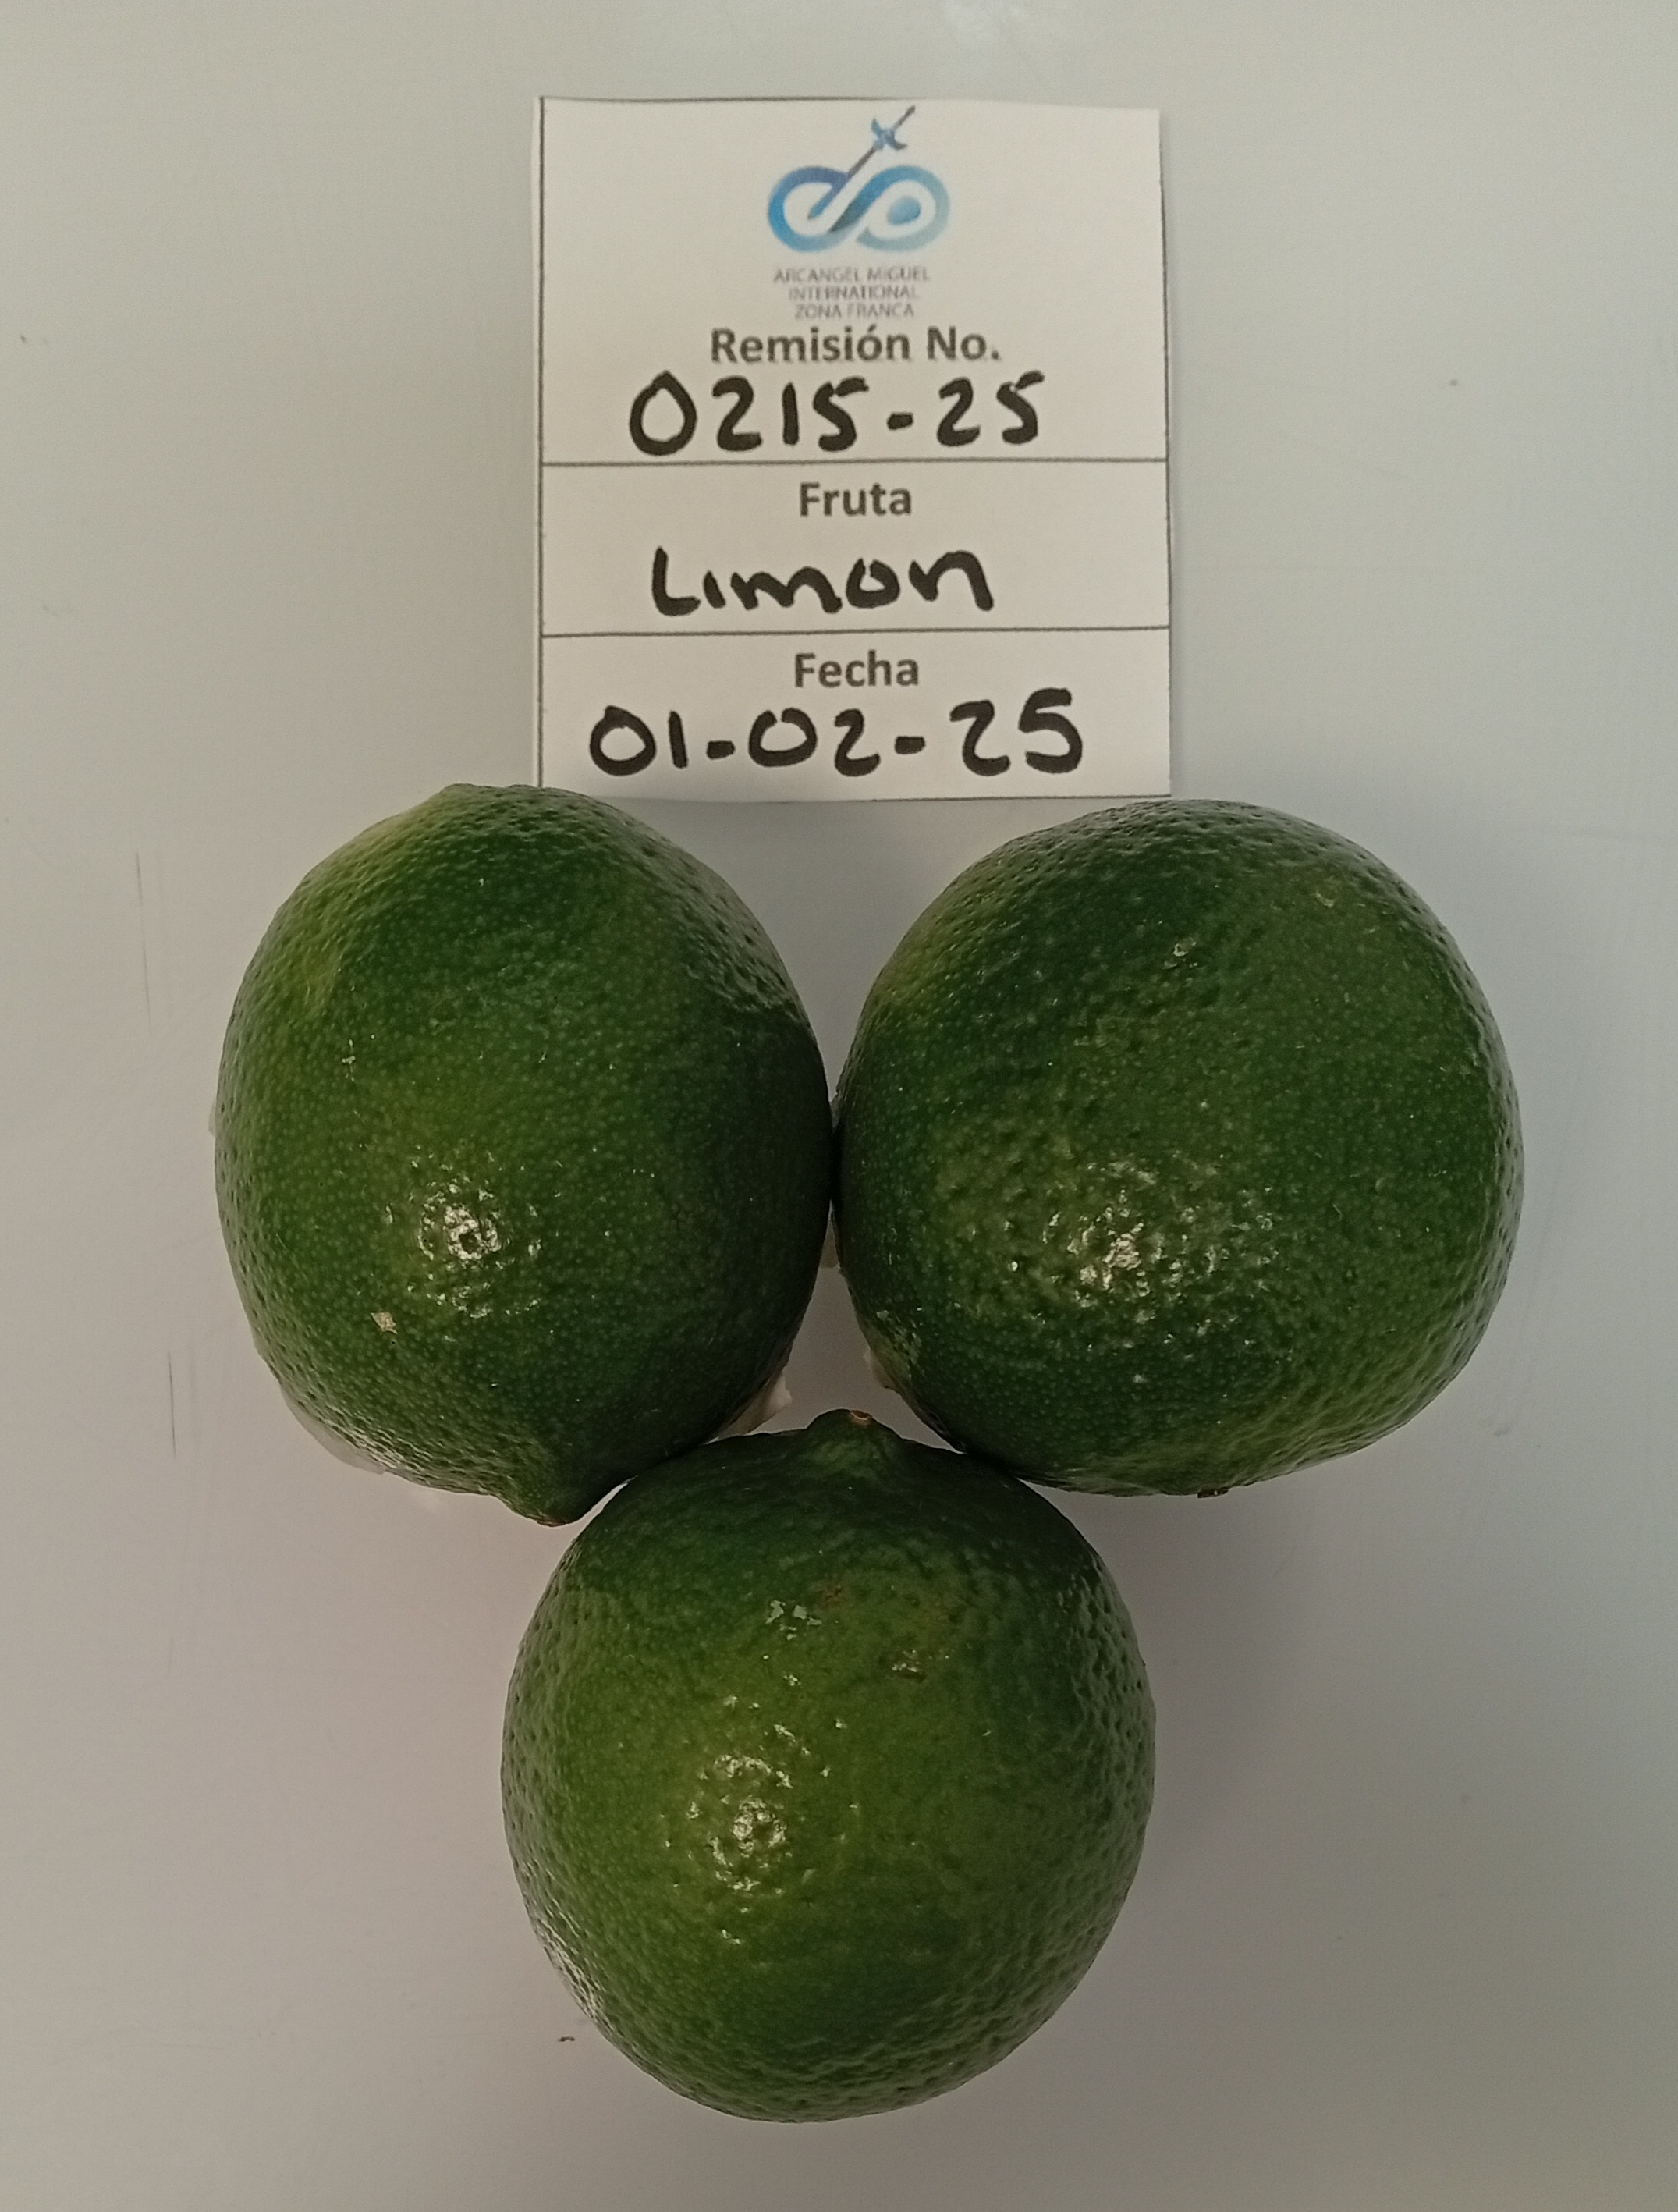 ARCANGEL MIGUEL
INTERNATIONAL
ZONA FRANCA
Remisión No.
0215-25
Fruta
Limon
Fecha
01-02-25